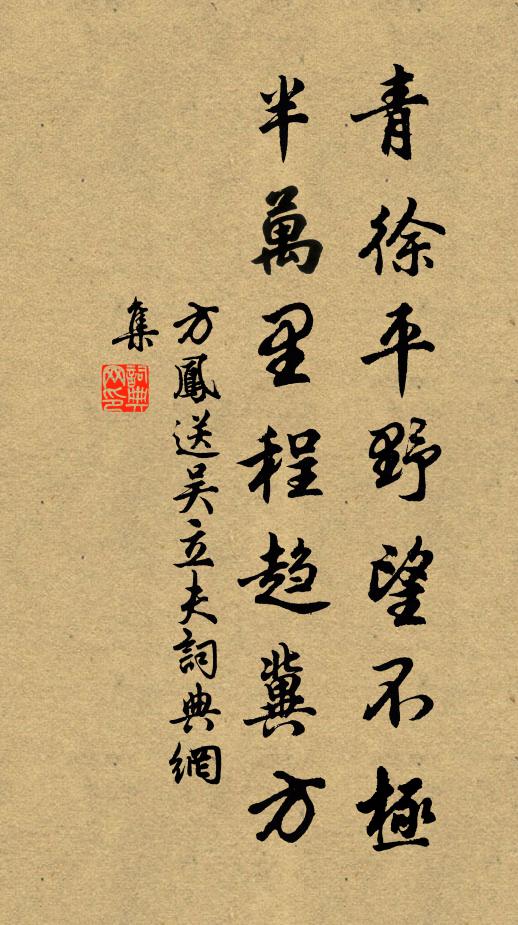 青徐平野望不極
半萬里程趨冀方
方鳳送吴立夫詞典網
集
詞典网印